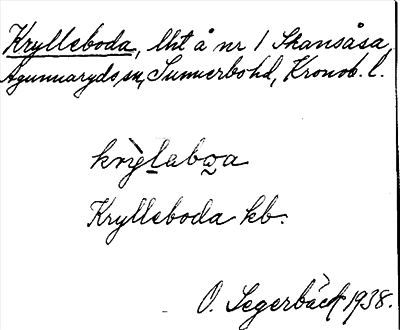 Krylleboda, lht å nr 1 Skansåsa,
Agunnaryds sn, Sunnerbo hd, Kronob. l.
krỳlaboa
Krylleboda kb.
O. Segerbäck 1938.